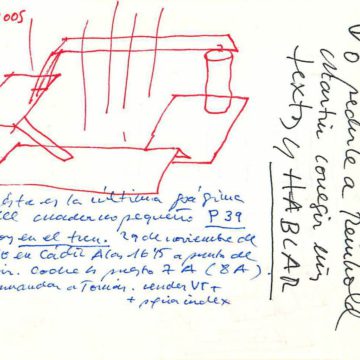 005
esta es la última página
cuaderno pequeño P 39
en el tren. 29 de noviembre de
en Cádiz A las 1675 a punto de
Coche y puesto 7 A (8A).
a Tomás. vender VT +
+ index
pedirle a Reinhold
Martin corregir mis
textos y HABLAR